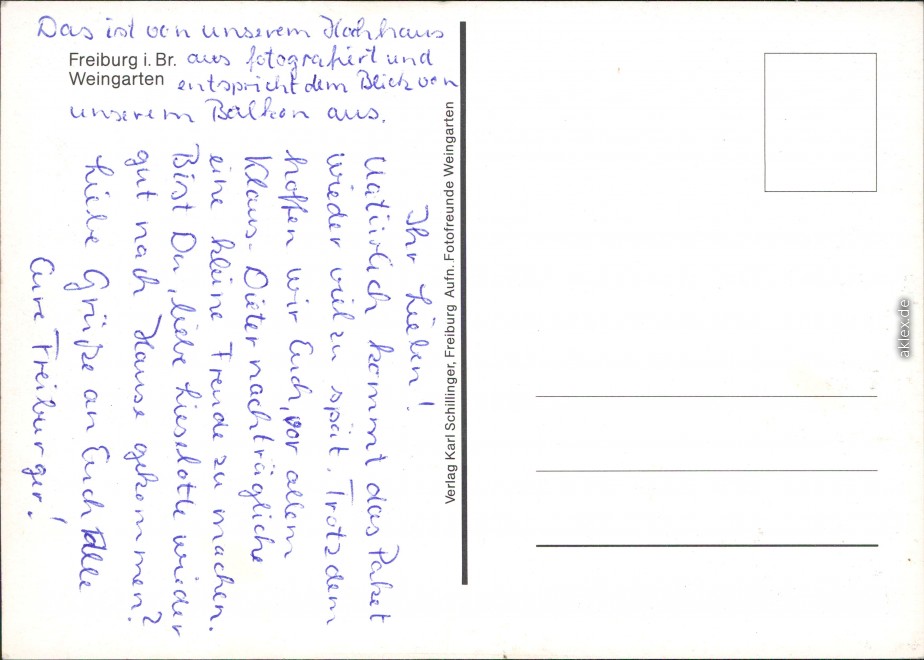 Das ist von unserem Hochhaus
Freiburg i. Br. aus fotografiert und
Weingarten entspricht dem Blick von
unserem Balkon aus.
Ihr Lieben!
Natürlich kommt das Paket
wieder viel zu spät. Trotzdem
hoffen wir Euch, vor allem
Klaus-Dieter nachträgliche
eine kleine Freude zu machen.
Bist Du, liebe Lieselotte wieder
gut nach Hause gekommen?
Liebe Grüße an Euch Alle
Eure Freiburger!
Verlag Karl Schillinger, Freiburg Aufn. Fotofreunde Weingarten
aklex.de